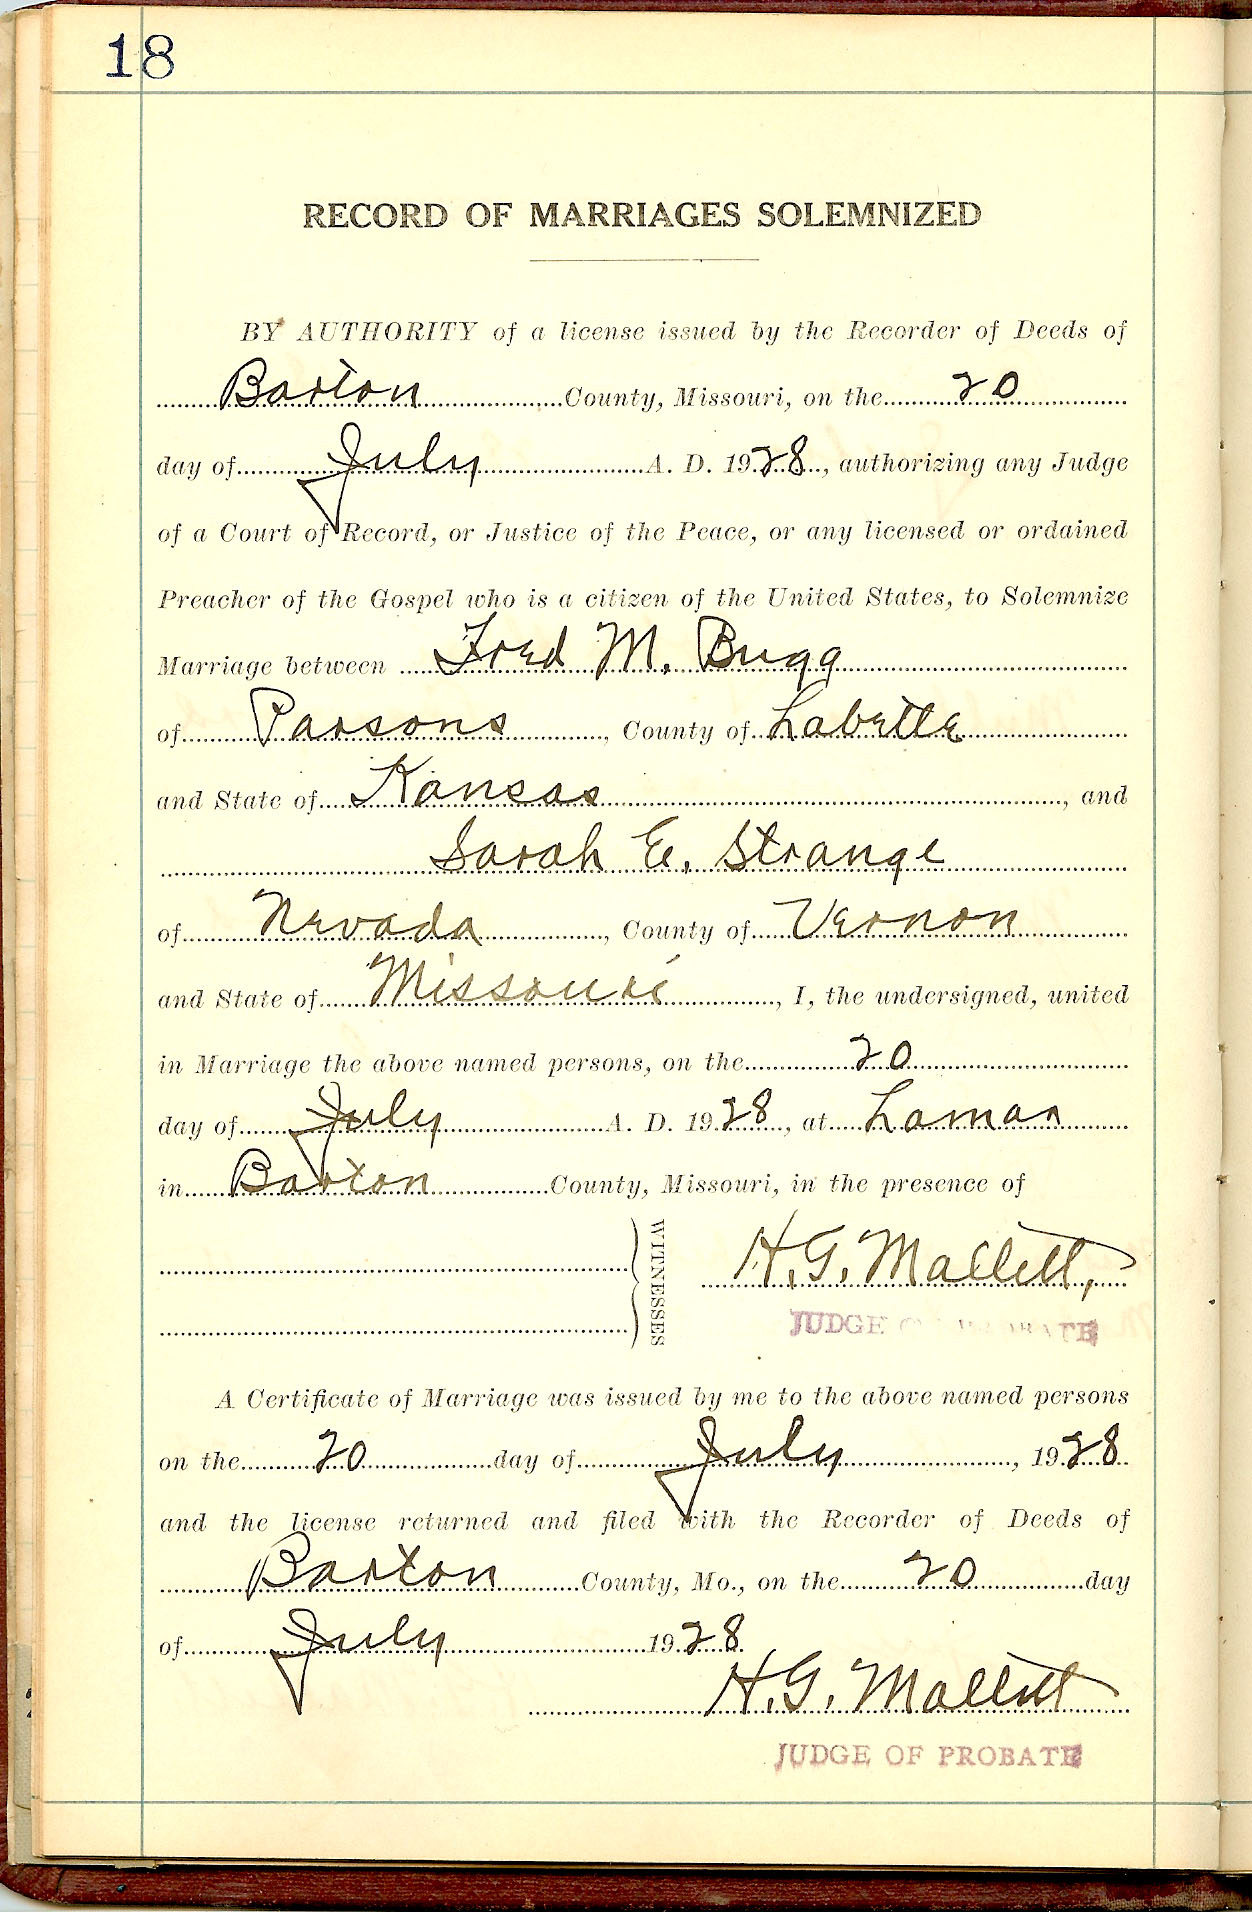 18
RECORD OF MARRIAGES SOLEMNIZED
BY AUTHORITY of a license issued by the Recorder of Deeds of
Barton County, Missouri, on the 20
day of July A. D. 1928, authorizing any Judge
of a Court of Record, or Justice of the Peace, or any licensed or ordained
Preacher of the Gospel who is a citizen of the United States, to Solemnize
Marriage between Fred M. Bugg
of Parsons, County of Labette
and State of Kansas, and
Sarah E. Strange
of Nevada, County of Vernon
and State of Missouri, I, the undersigned, united
in Marriage the above named persons, on the 20
day of July A. D. 1928, at Lamar
in Barton County, Missouri, in the presence of
WITNESSES
H. G. Mallett,
JUDGE OF PROBATE
A Certificate of Marriage was issued by me to the above named persons
on the 20 day of July, 1928
and the license returned and filed with the Recorder of Deeds of
Barton County, Mo., on the 20 day
of July 1928.
H. G. Mallett
JUDGE OF PROBATE